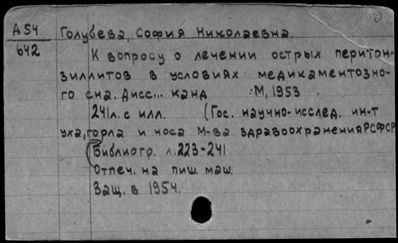 А54 Голубева, София Николаевна.
642 К вопросу о лечении острых перитон-
зиллитов в условиях медикаментозно-
го сна. Дисс... канд М, 1953
241л. с илл. (Гос. научно-исслед. ин-т
уха, горла и носа М-ва здравоохранения РСФСР
(Библиогр. л. 223-241
Отпеч. на пиш. маш.
Защ. в 1954.